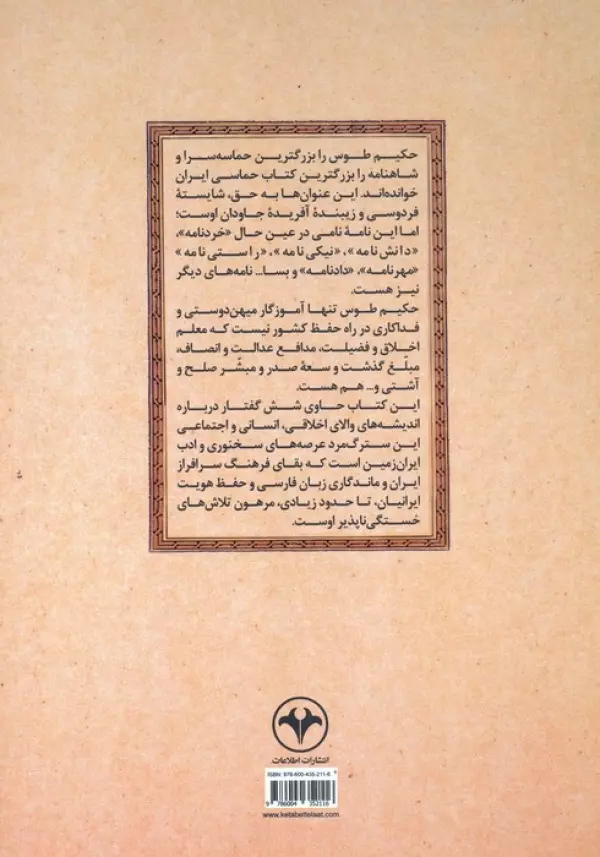 حکیم طوس را بزرگترین حماسه‌سرا و
شاهنامه را بزرگترین کتاب حماسی ایران
خوانده‌اند. این عنوان‌ها به حق، شایستهٔ
فردوسی و زیبندهٔ آفریدهٔ جاودان اوست؛
اما این نامهٔ نامی در عین حال «خردنامه»،
«دانش‌نامه»، «نیکی‌نامه»، «راستی‌نامه»
«مهرنامه»، «دادنامه» و بسا... نامه‌های دیگر
نیز هست.
حکیم طوس تنها آموزگار میهن‌دوستی و
فداکاری در راه حفظ کشور نیست که معلم
اخلاق و فضیلت، مدافع عدالت و انصاف،
مبلّغ گذشت و سعهٔ صدر و مبشّر صلح و
آشتی و... هم هست.
این کتاب حاوی شش گفتار درباره
اندیشه‌های والای اخلاقی، انسانی و اجتماعی
این سترگ‌مرد عرصه‌های سخنوری و ادب
ایران‌زمین است که بقای فرهنگ سرافراز
ایران و ماندگاری زبان فارسی و حفظ هویت
ایرانیان، تا حدود زیادی، مرهون تلاش‌های
خستگی‌ناپذیر اوست.
انتشارات اطلاعات
ISBN: 978-600-435-211-6
9 786004 352116
www.ketabettelaat.com